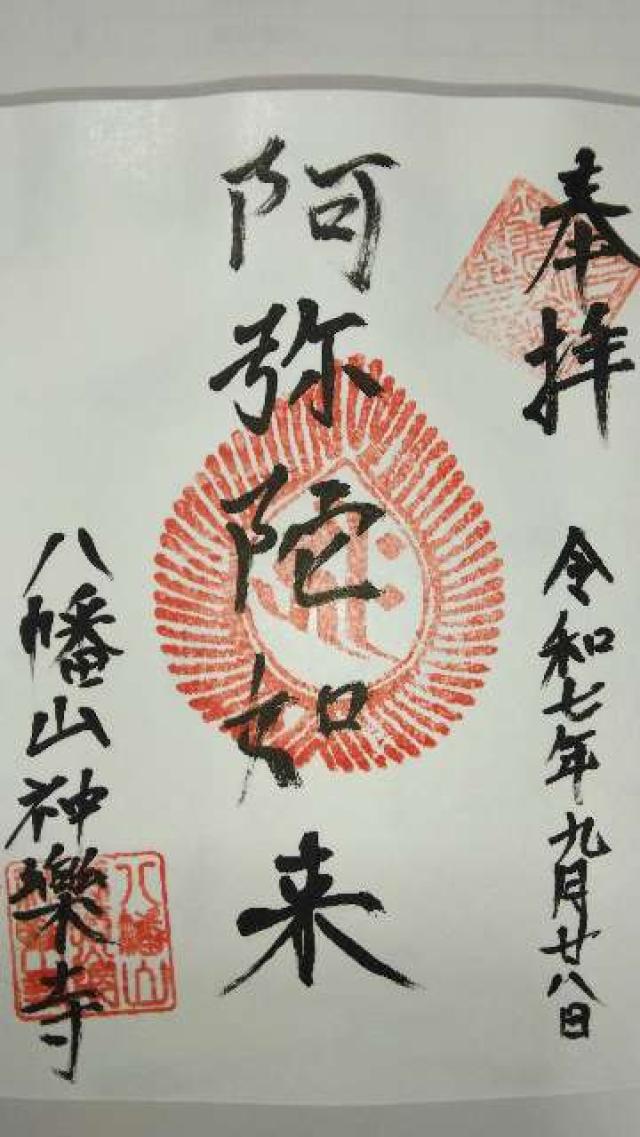 奉拝
令和七年九月廿八日
阿弥陀如来
八幡山神樂寺
八幡山